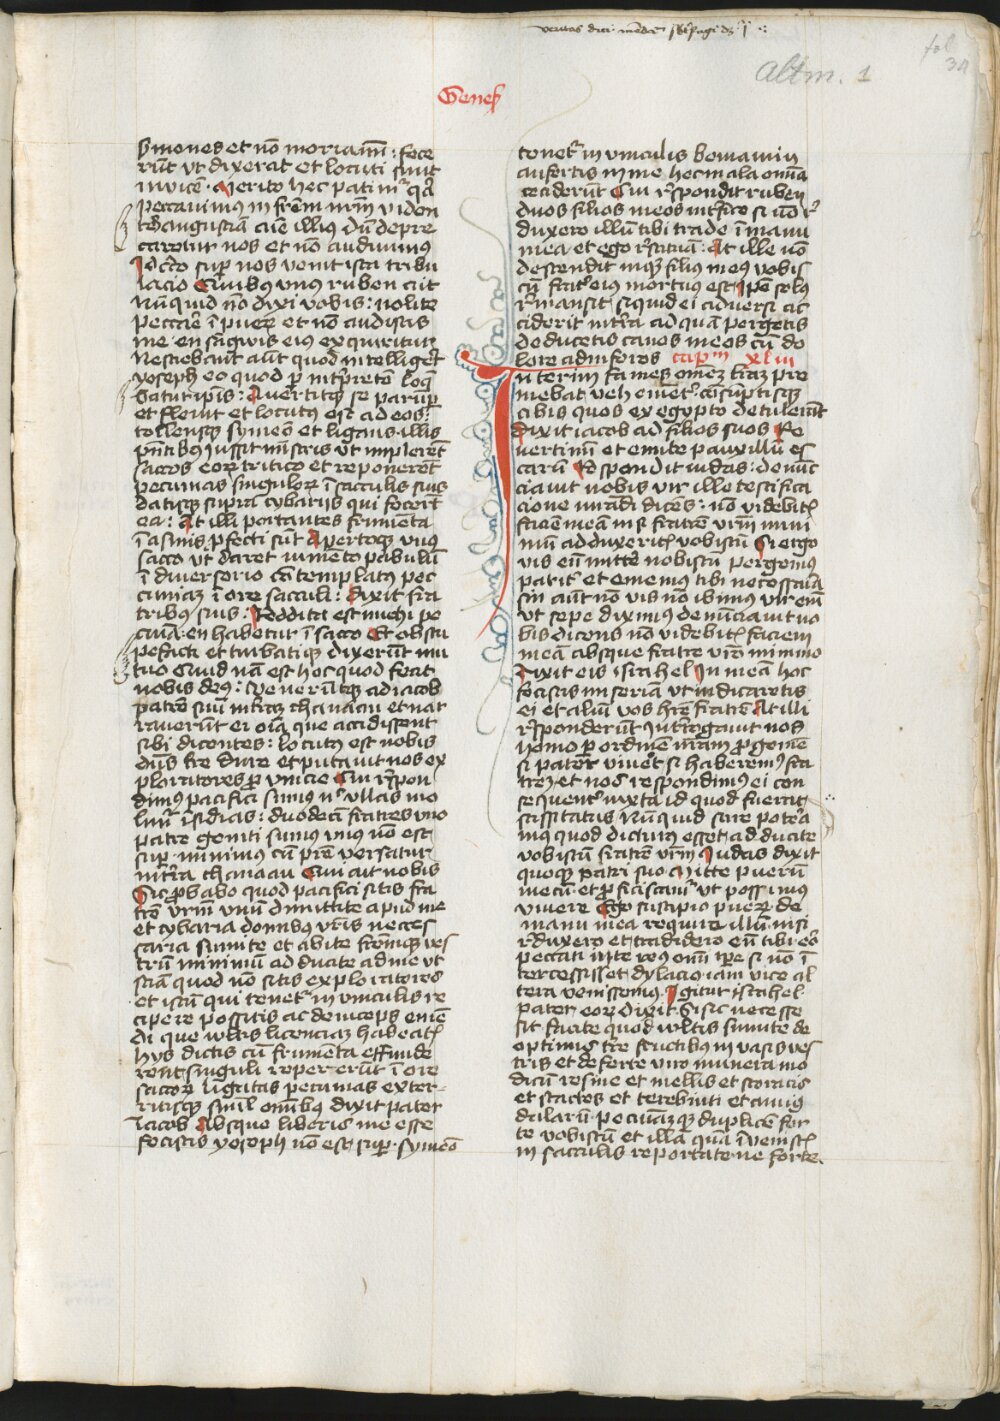 fol
34
altm. 1
Genes
s̄mones et nō moriamīn : fece
rūt vt dixerat et locuti sunt
invicē · Merito hec patimr̄ q̄a
peccavimus in frēm nr̄m viden
tes angustiā aīe illius dū depre
caretur nos et nō audivimus
Idcīrco sup nos venit ista tribu
lacio Quibus vnus ruben ait
Nūquid nō dixi vobis : nolite
peccare ī puerū et nō audistis
me en sangwis eius exquiritur
Nesciebant aūt quod intelligēt
yoseph eo quod p intp̄retē loq̄
batur ipīs : Avertitqȝ se parūp
et flevit et locutus est ad eos :
tollensqȝ symeō et ligans illis
pn̄tibus iussit mīstris vt implerēt
saccos eorū tritico et reponerēt
pecunias singulorū ī sacculis suis
datisqȝ supra cybarijs qui fecerūt
ea : At illi portantes frumēta
ī asinis pfecti sunt Apertoqȝ vnus
sacco vt daret iumēto pabulū
ī diversorio cōtemplatus pec
cuniā ī ore sacculi : dixit fra
tribus suis : Reddita est michi pe
cunia : en habetur ī sacco Et obstu
pefacti et turbatiqȝ dixerūt mu
tuo Quid nam est hoc quod fecit
nobis deus : Venerūtqȝ ad iacob
patrē suū in terrā chanaan et nar
raverūt ei oīa que accidissent
sibi dicentes : locutus est nobis
dn̄s tre dure et putavit nos ex
ploratores p vincie Cui respon
dimus pacifici sumus nec vllas mo
limur īsidias : duodecī fratres vno
patre geniti sumus vnus nō est
sup · minimus cū pre versatur
in tr̄a chanaan Qui ait nobis
Sic p̄babo quod pacifici sitis fra
trē vr̄m vnū dimittite apud me
et cybaria domibus vr̄is neces
saria sumite et abite frēmqȝ ves
trū minimū adducite ad me vt
sciā quod nō sitis exploratores
et istū qui tenet̄ in vinculis re
cipere possitis ac deinceps emē
di que vultis licenciā habeatis
hys dictis cū frumēta effunde
rent singuli repererūt ī ore
saccorū ligatas pecunias exter
ritisqȝ simul omībus dixit pater
iacob Absque liberis me esse
fecistis yoseph nō est sup · symeō
tenet̄ in vinculis beniamin
aufertis in me hec mala om̄ia
reciderūt Cui respondit ruben
duos filios meos intfice si nō re
duxero illū tibi trade ī manu
mea et ego restituā : At ille nō
descendit inqȝ filius meus vobiscū
cū frater eius mortuus est Ipse solus
remansit si quid ei adversi ac
ciderit in tr̄a ad quā pergetis
deducetis canos meos cū do
lore ad inferos capm xliii
Interim fames omē trā pre
mebat vehemēter cōsumptisqȝ
cibis quos ex egypto detulerāt
dixit iacob ad filios suos Re
vertimī et emite pauxillū es
carū Respondit iudas : denūc
ciavit nobis vir ille testifica
cione iurādi dicēs : nō videbitis
faciē meā nisi fratrē vr̄m mini
mū adduxeritis vobiscū Si ergo
vis eū mittere nobiscū pergemus
pariter et ememus tibi necessaria
sin aūt nō vis nō ibimus vir enī
vt sepe diximus denūciavit no
bis dicens nō videbitis faciem
meā absque fratre vr̄o minimo
Dixit eis israhel In meā hoc
fecistis miseriam vt indicaretis
ei et aliū vos habere fratrē At illi
responderūt Interrogavit nos
homo p ordinē nr̄am p̄geniē
si pater viveret si haberemus fra
trē et nos respondimus ei con
sequenter iuxta id quod fuerat
sciscitatus Nūquid scire poterā
mus quod dicturus esset adducite
vobiscū fratrē vr̄m Iudas dixit
quoqȝ patri suo mitte puerū
mecū et p̄ficiscamur vt possimus
vivere Ego suscipio puerū de
manu mea require illū nisi
reduxero et tradidero eū tibi ero
peccati in te reus omī tpe si nō ī
tercessisset dylacio iam vice al
tera venissemus Igitur israhel
pater eorū dixit Si sic necesse
sit facite quod vultis sumite de
optimis tre fructibus in vasis ves
tris et deferte viro munera mo
dicū resine et mellis et storacis
et stactes et terebinti et amig
dalarū · pecuniāqȝ duplicē for
te vobiscū et illā quā īvenistis
in sacculis reportate ne forte